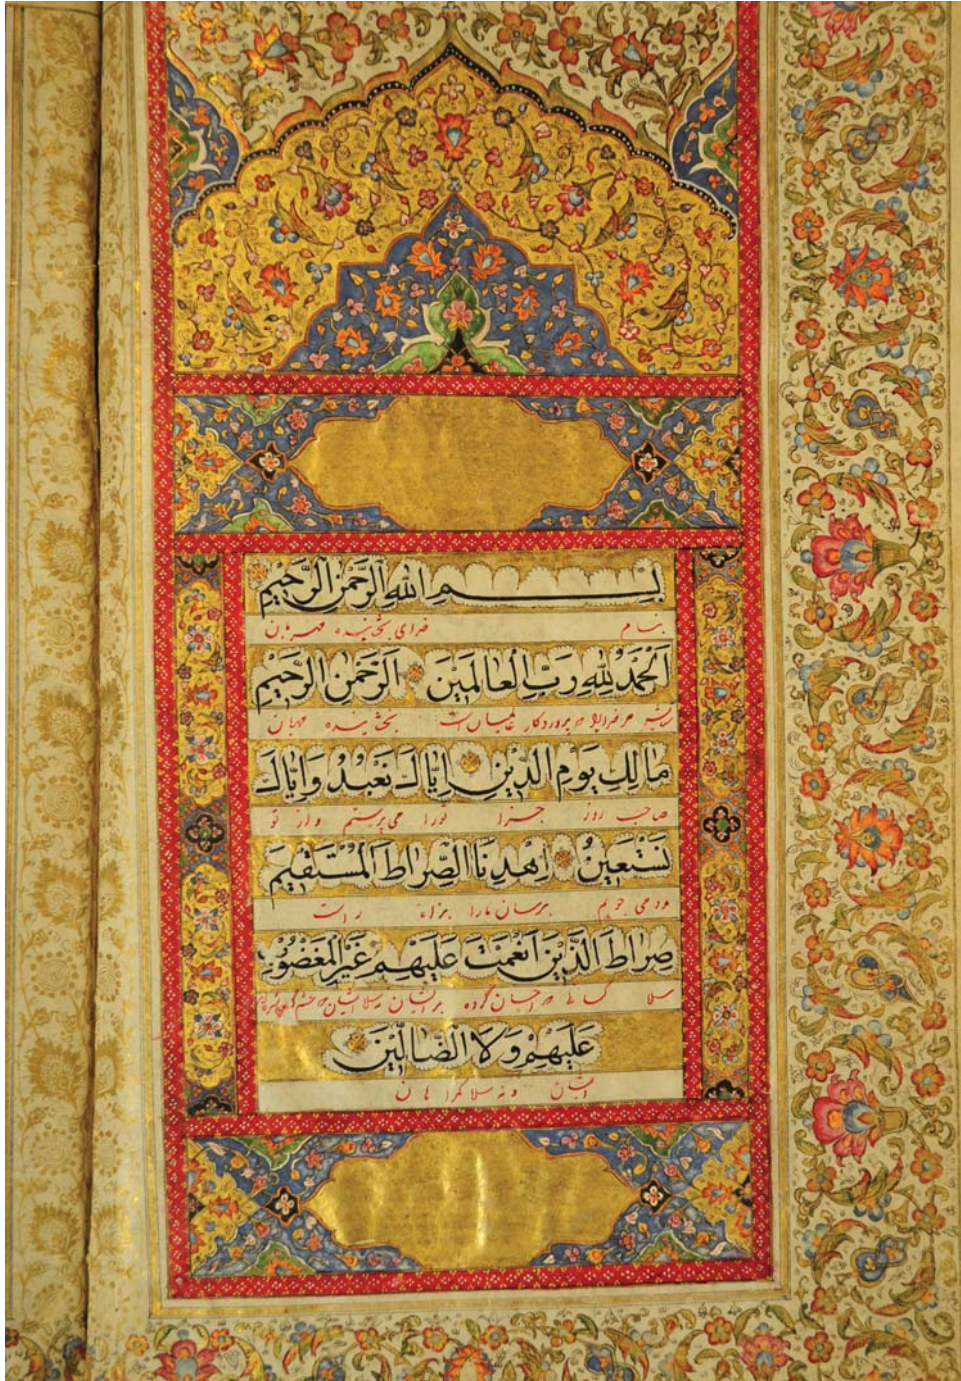 بِسْمِ اللهِ الرَّحْمٰنِ الرَّحِيْمِ
بنام خدای بخشنده مهربان
اَلْحَمْدُ لِلّٰهِ رَبِّ الْعَالَمِيْنَ اَلرَّحْمٰنِ الرَّحِيْمِ
مر خدایرا پروردکار عالمیان است بخشنده مهربان
مَالِكِ يَوْمِ الدِّيْنِ اِيَّاكَ نَعْبُدُ وَاِيَّاكَ
صاحب روز جزا تورا می پرستم و از تو
نَسْتَعِيْنُ اِهْدِنَا الصِّرَاطَ الْمُسْتَقِيْمَ
مدد می جویم برسان مارا براه راست
صِرَاطَ الَّذِيْنَ اَنْعَمْتَ عَلَيْهِمْ غَيْرِ الْمَغْضُوْبِ
بر ایشان
عَلَيْهِمْ وَلَا الضَّالِّيْنَ
ایشان و نه گمراهان